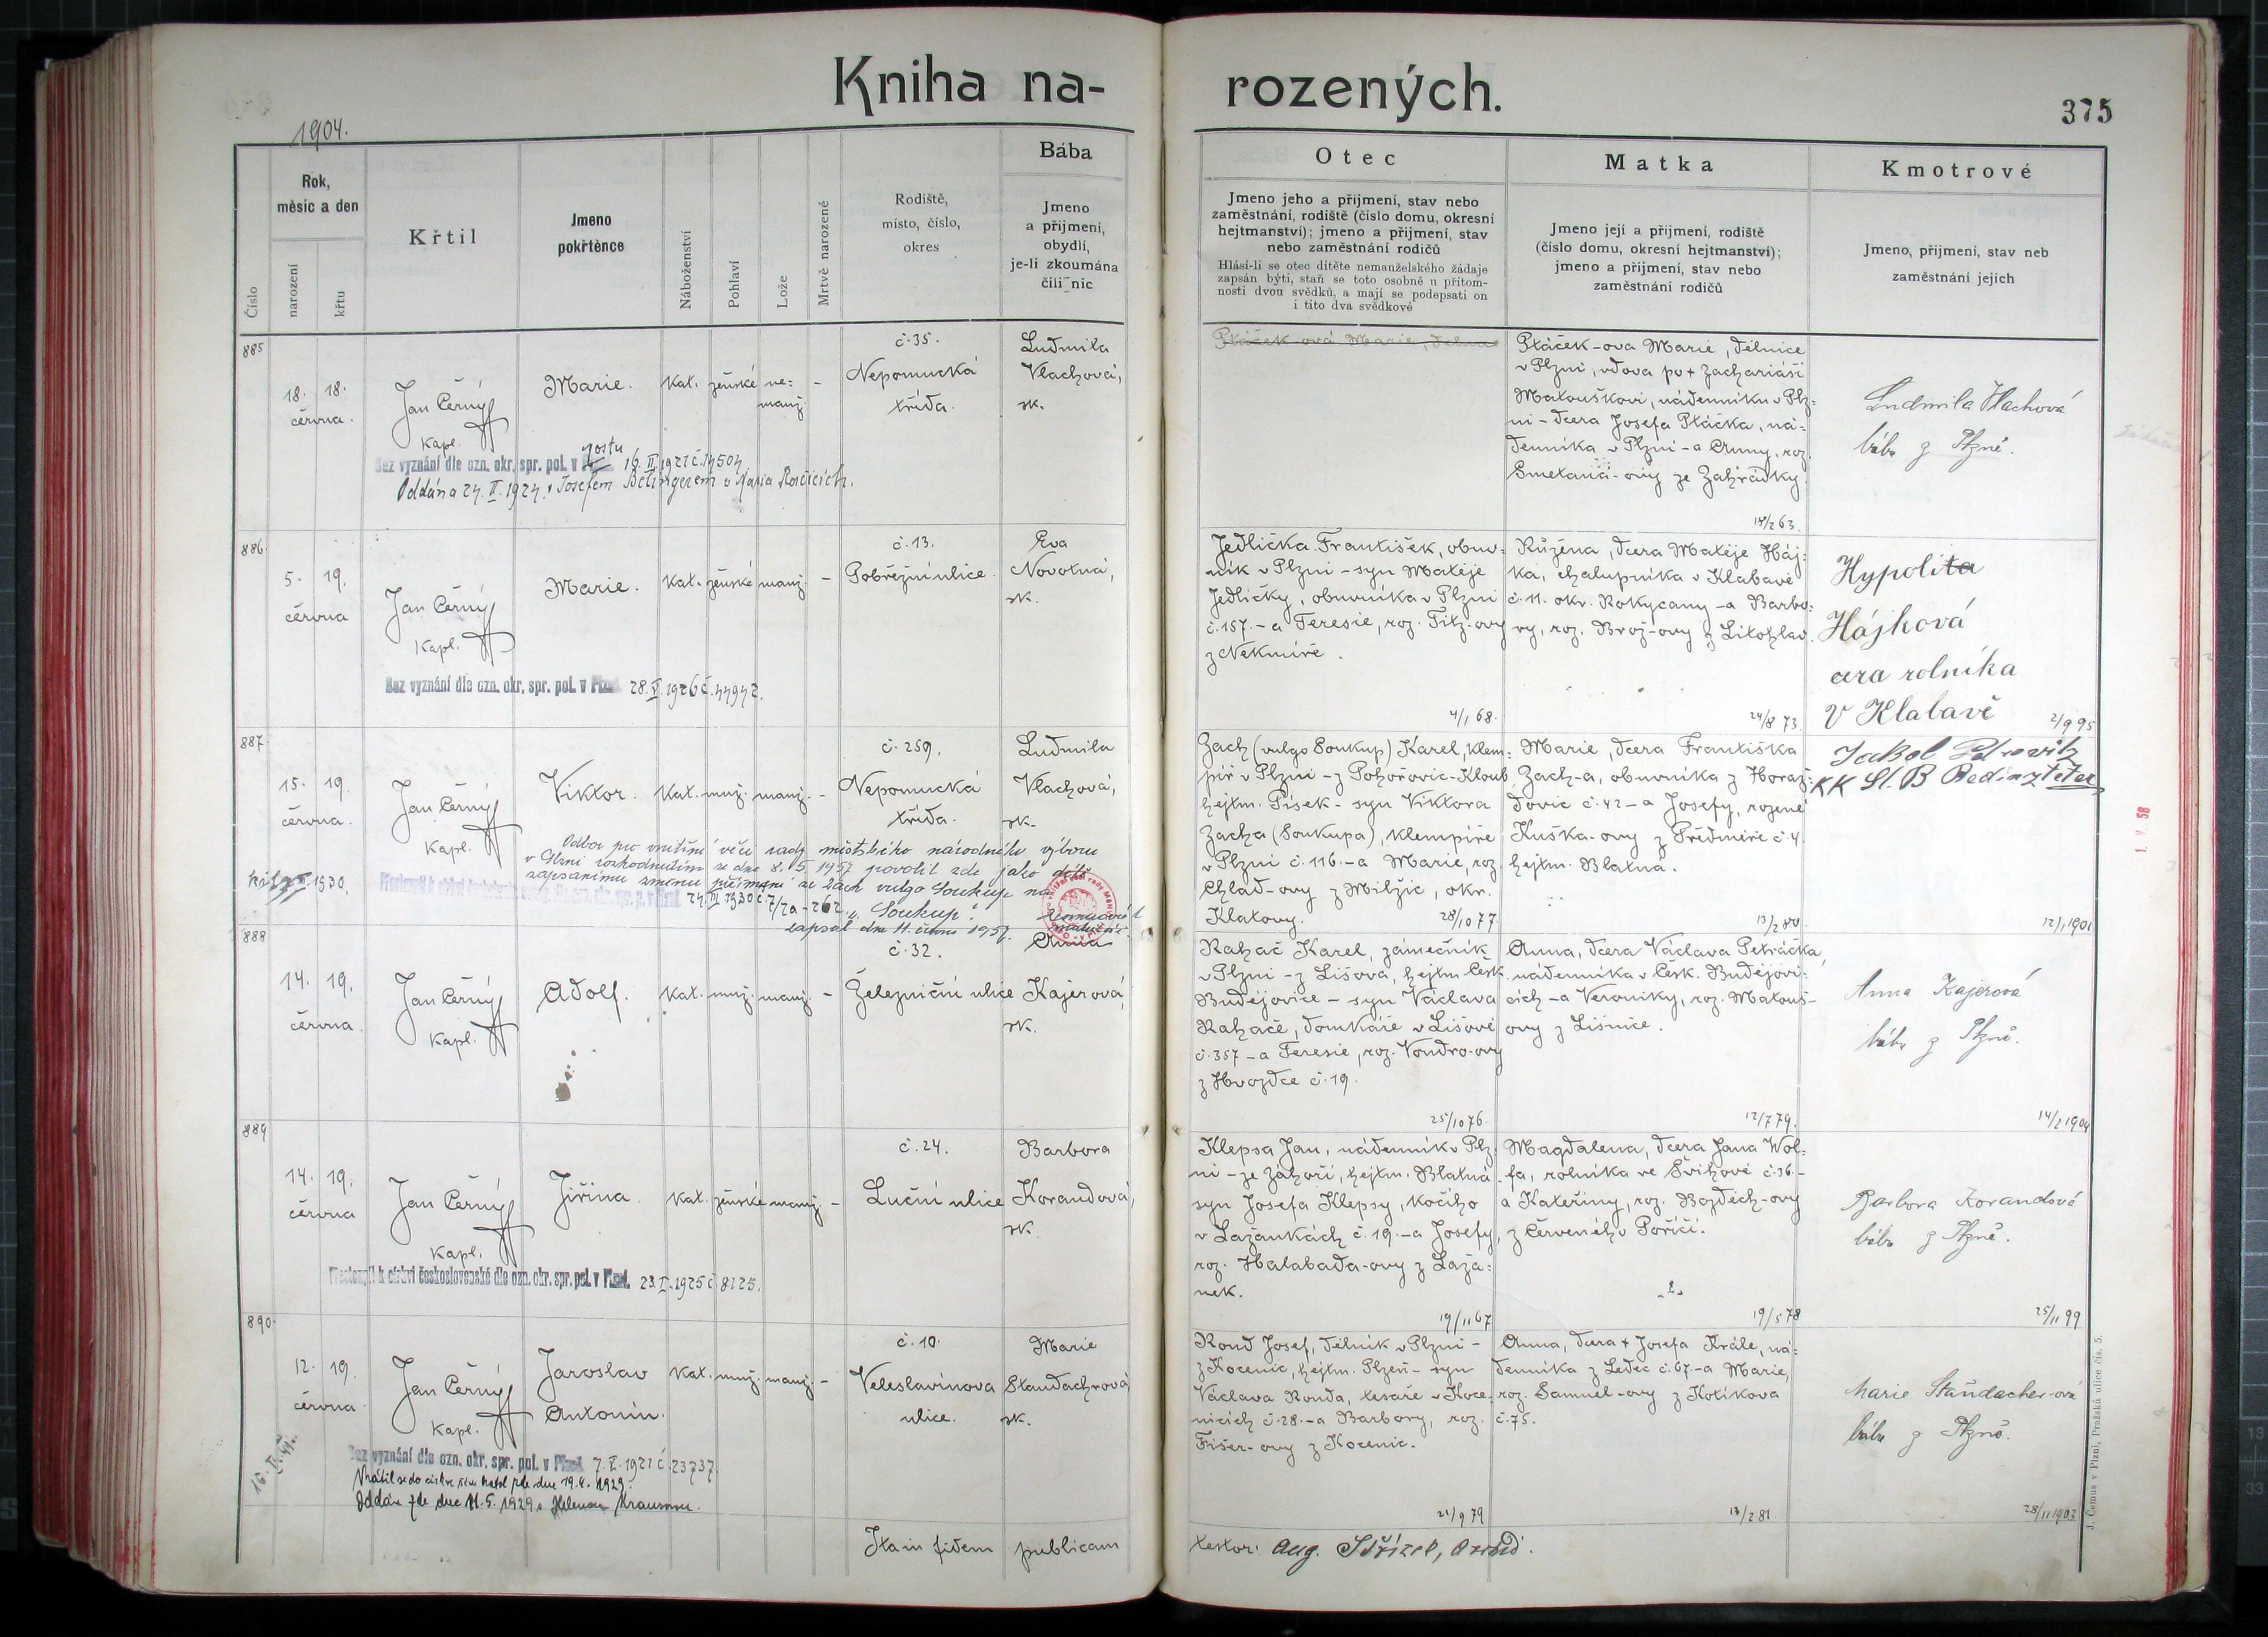 Kniha na-
rozených.
375
1904.
Číslo
Rok,
měsíc a den
narození
křtu
Křtil
Jmeno
pokřtěnce
Náboženství
Pohlaví
Lože
Mrtvě narozené
Rodiště,
místo, číslo,
okres
Bába
Jmeno
a přijmení,
obydlí,
je-li zkoumána
čili nic
Otec
Jmeno jeho a přijmení, stav nebo
zaměstnání, rodiště (číslo domu, okresní
hejtmanství); jmeno a přijmení, stav
nebo zaměstnání rodičů
Hlásí-li se otec dítěte nemanželského žádaje
zapsán býti, staň se toto osobně u přítom-
nosti dvou svědků, a mají se podepsati on
i tito dva svědkové
Matka
Jmeno její a přijmení, rodiště
(číslo domu, okresní hejtmanství);
jmeno a přijmení, stav nebo
zaměstnání rodičů
Kmotrové
Jmeno, přijmení, stav neb
zaměstnání jejich
885
18. 18.
června.
Jan Černý
Kapl.
Marie.
kat. ženské ne=
manž. -
č. 35.
Nepomucká
třída.
Ludmila
Vlachová,
zk.
Bez vyznání dle ozn. okr. spr. pol. v 16. II. 1921 č. 14504
Oddána 24. II. 1924 s Josefem
Ptáček-ová Marie, dělnice
Ptáček-ova Marie, dělnice
v Plzni, vdova po + Zachariáši
Matouškovi, nádenníku v Plz=
ni - dcera Josefa Ptáčka, ná=
denníka v Plzni - a Anny, roz.
Smetana-ovy ze Zahrádky.
14/2 63.
Ludmila Vlachová
bába z Plzně.
886
5. 19.
června
Jan Černý
Kapl.
Marie.
kat. ženské manž. -
č. 13.
Pobřežní ulice.
Eva
Novotná,
zk.
Bez vyznání dle ozn. okr. spr. pol. v Plzni 28. V. 1926 č. 44942.
Jedlička František, obuv=
ník v Plzni - syn Matěje
Jedličky, obuvníka v Plzni
č. 157. - a Teresie, roz. Fitz-ovy
z Nekmíře.
4/1 68.
Růžena, dcera Matěje Háj=
ka, chalupníka v Klabavě
č. 11. okr. Rokycany - a Barbo=
ry, roz. Brož-ovy z Litohlav.
24/8 73
Hypolita
Hájková
cera rolníka
v Klabavě
2/9 95
887
15. 19.
června.
Jan Černý
Kapl.
Viktor.
kat. muž. manž. -
č. 259.
Nepomucká
třída.
Ludmila
Vlachová,
zk.
Odbor pro vnitřní věci rady městského národního výboru
v Plzni rozhodnutím ze dne 8. 5. 1957 povolil zde jako dítě
zapsanému změnu příjmení ze Zach vulgo Soukup na
24. III. 1930 č. 7/20-262 „Soukup".
zapsal dne 11. června 1957.
1930.
Zach (vulgo Soukup) Karel, klem=
píř v Plzni - z Pohořovic-Kloub
hejtm. Písek - syn Viktora
Zacha (Soukupa), klempíře
v Plzni č. 116. - a Marie, roz.
Chlad-ovy z Milžic, okr.
Klatovy.
28/10 77
Marie, dcera Františka
Zach-a, obuvníka z Horaž=
ďovic č. 42 - a Josefy, rozené
Kuška-ovy z Předmíře č. 4.
hejtm. Blatná.
13/2 80
12/1 1901
1. V. 58
888
14. 19.
června.
Jan Černý
Kapl.
Adolf.
kat. muž. manž. -
č. 32.
Železniční ulice
Anna
Kajerová,
zk.
Rahač Karel, zámečník
v Plzni - z Lišova, hejtm. Česk.
Budějovice - syn Václava
Rahače, domkáře v Lišově
č. 357 - a Teresie, roz. Vondro-ovy
z Hvozdce č. 19.
25/10 76.
Anna, dcera Václava Petráčka,
nádenníka v Česk. Budějovi=
cích - a Veroniky, roz. Matouš-
ovy z Lišnice.
12/7 79.
Anna Kajerová
bába z Plzně.
14/2 1904
889
14. 19.
června
Jan Černý
Kapl.
Jiřina.
kat. ženské manž. -
č. 24.
Luční ulice
Barbora
Korandová,
zk.
Přestoupil k církvi československé dle ozn. okr. spr. pol. v Plzni. 23. I. 1925 č. 8125.
Klepsa Jan, nádenník v Plz=
ni - ze Záhoří, hejtm. Blatná -
syn Josefa Klepsy, kočího
v Lažankách č. 19. - a Josefy,
roz. Halabada-ovy z Laža=
nek.
19/11 67
Magdalena, dcera Jana Wol=
fa, rolníka ve Švihově č. 36. -
a Kateřiny, roz. Bojdech-ovy
z Červeného Poříčí.
19/5 78
Barbora Korandová
bába z Plzně.
25/11 99
890.
12. 19.
června.
Jan Černý
Kapl.
Jaroslav
Antonín.
kat. muž. manž. -
č. 10.
Veleslavínova
ulice.
Marie
Standachrová
zk.
Bez vyznání dle ozn. okr. spr. pol. v Plzni 7. V. 1921 č. 23737.
Vrátil se do církve řím. katol. zde dne 19.4. 1929.
Oddán zde dne 11.5. 1929 s Helenou Krausovou.
Rond Josef, dělník v Plzni -
z Kocenic, hejtm. Plzeň - syn
Václava Ronda, tesaře v Koce=
nicích č. 28. - a Barbory, roz.
Fišer-ovy z Kocenic.
21/9 79
Anna, dcera + Josefa Krále, ná=
denníka z Ledec č. 67. - a Marie,
roz. Samuel-ovy z Kotíkova
č. 75.
13/2 81.
Marie Standacher-ová
bába z Plzně.
28/11 1903
Itam fidem publicam
testor: Aug. Střízel,
J. Čemus v Plzni, Pražská ulice čís. 5.